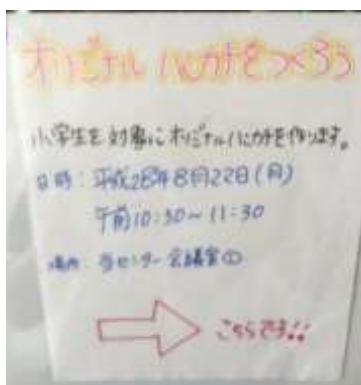 オリジナルハンカチをつくろう
小学生を対象にオリジナルハンカチを作ります。
日時：平成28年8月22日(月)
午前10:30～11:30
場所：当センター会議室①
こちらです!!